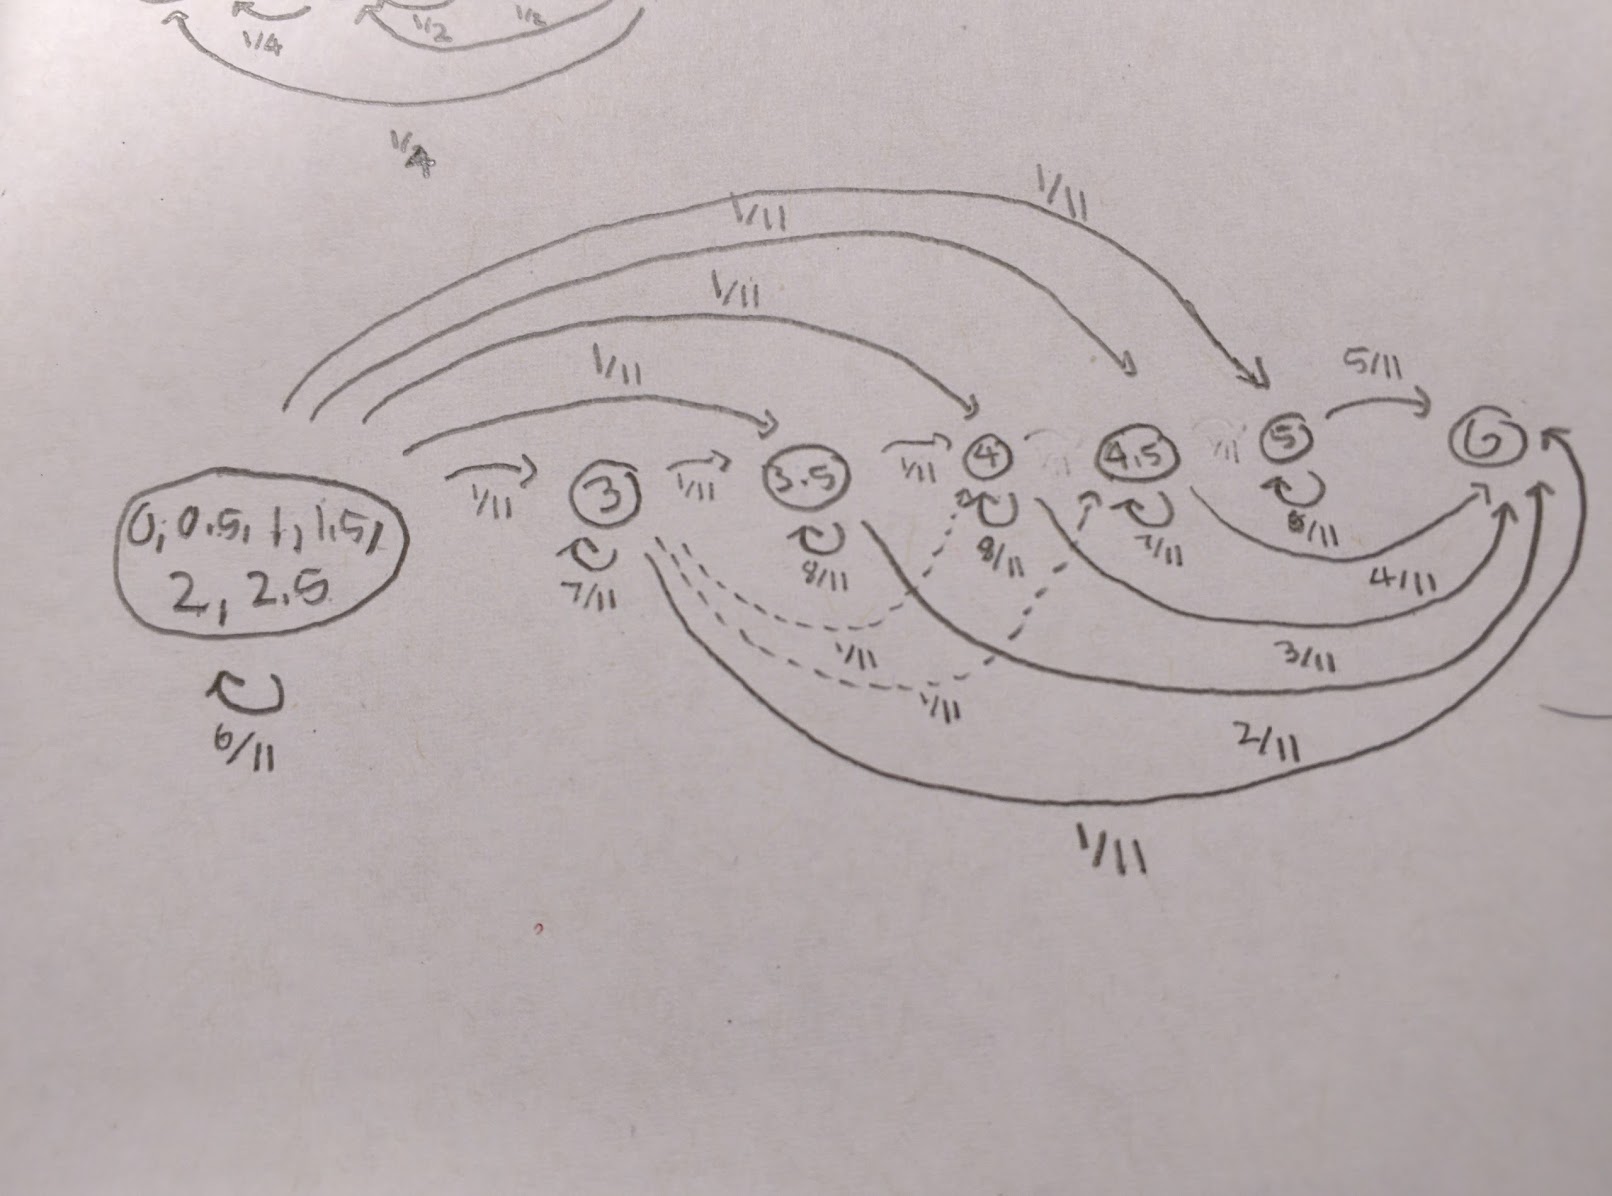 1/4
1/2
1/2
1/4
1/11
1/11
1/11
1/11
5/11
0, 0.5, 1, 1.5,
2, 2.5
1/11
3
1/11
3.5
1/11
4
1/11
4.5
1/11
5
6
6/11
7/11
8/11
8/11
7/11
4/11
1/11
3/11
1/11
2/11
1/11